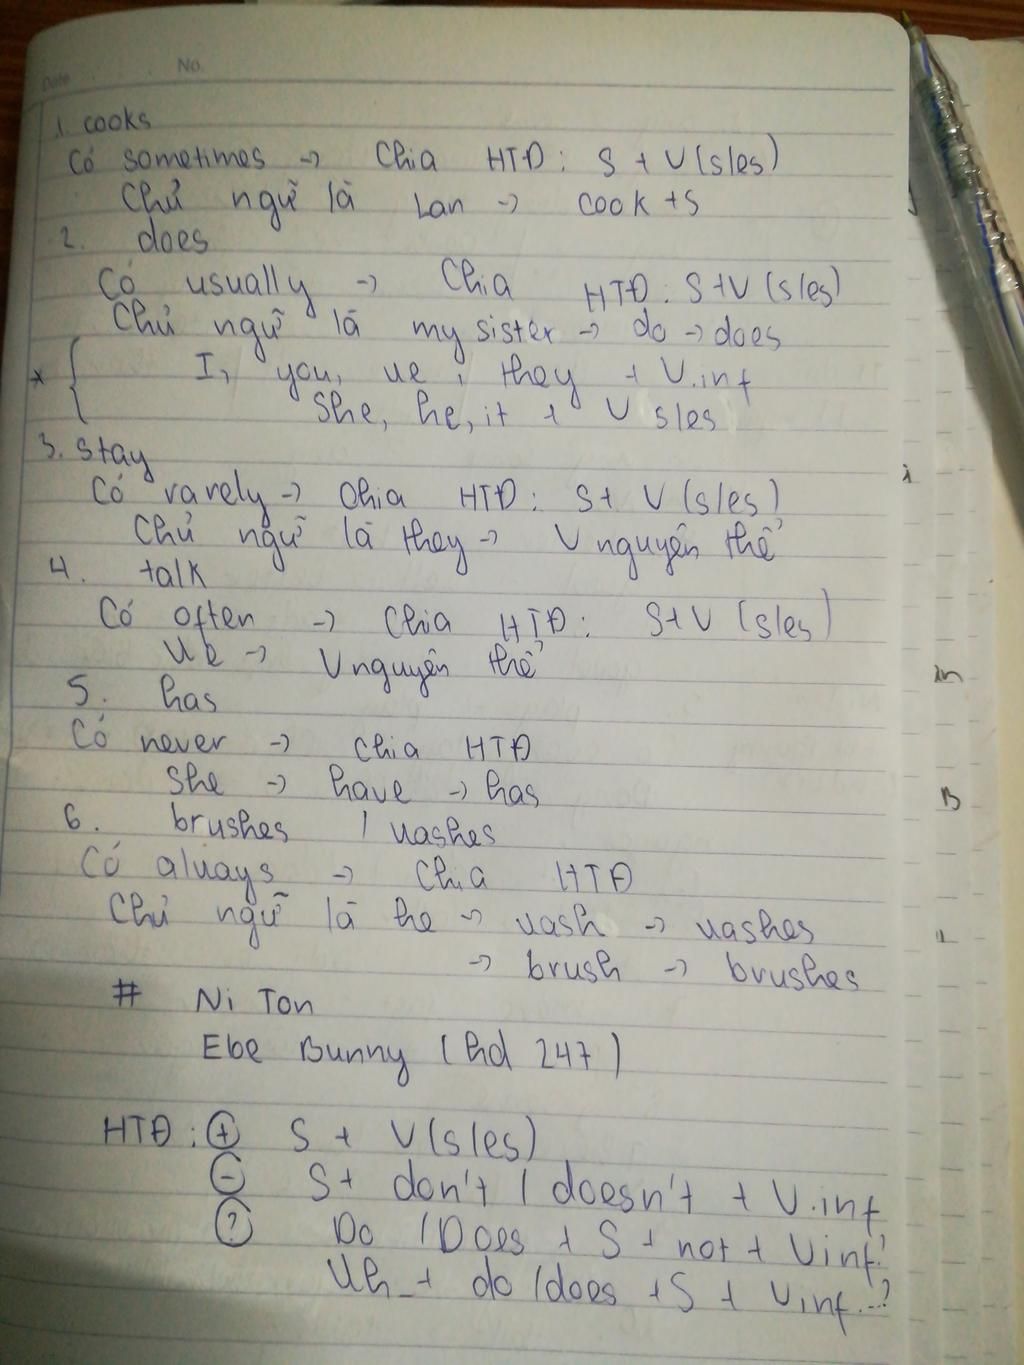 Date No.
1. cooks
Có sometimes -> Chia HTĐ: S + V(s/es)
Chủ ngữ là Lan -> cook + s
2. does
Có usually -> Chia HTĐ: S+V(s/es)
Chủ ngữ là my sister -> do -> does
* { I, you, we, they + V.inf
She, he, it + V s/es
3. stay
Có rarely -> Chia HTĐ: S+ V(s/es)
Chủ ngữ là they -> V nguyên thể
4. talk
Có often -> Chia HTĐ: S+V (s/es)
We -> V nguyên thể
5. has
Có never -> Chia HTĐ
She -> have -> has
6. brushes / washes
Có always -> Chia HTĐ
Chủ ngữ là he -> wash -> washes
-> brush -> brushes
# Ni Ton
Ebe Bunny (hd 247)
HTĐ: (+) S + V(s/es)
(-) S+ don't / doesn't + V.inf
(?) Do / Does + S + not + Vinf?
Wh_ + do/does + S + Vinf...?